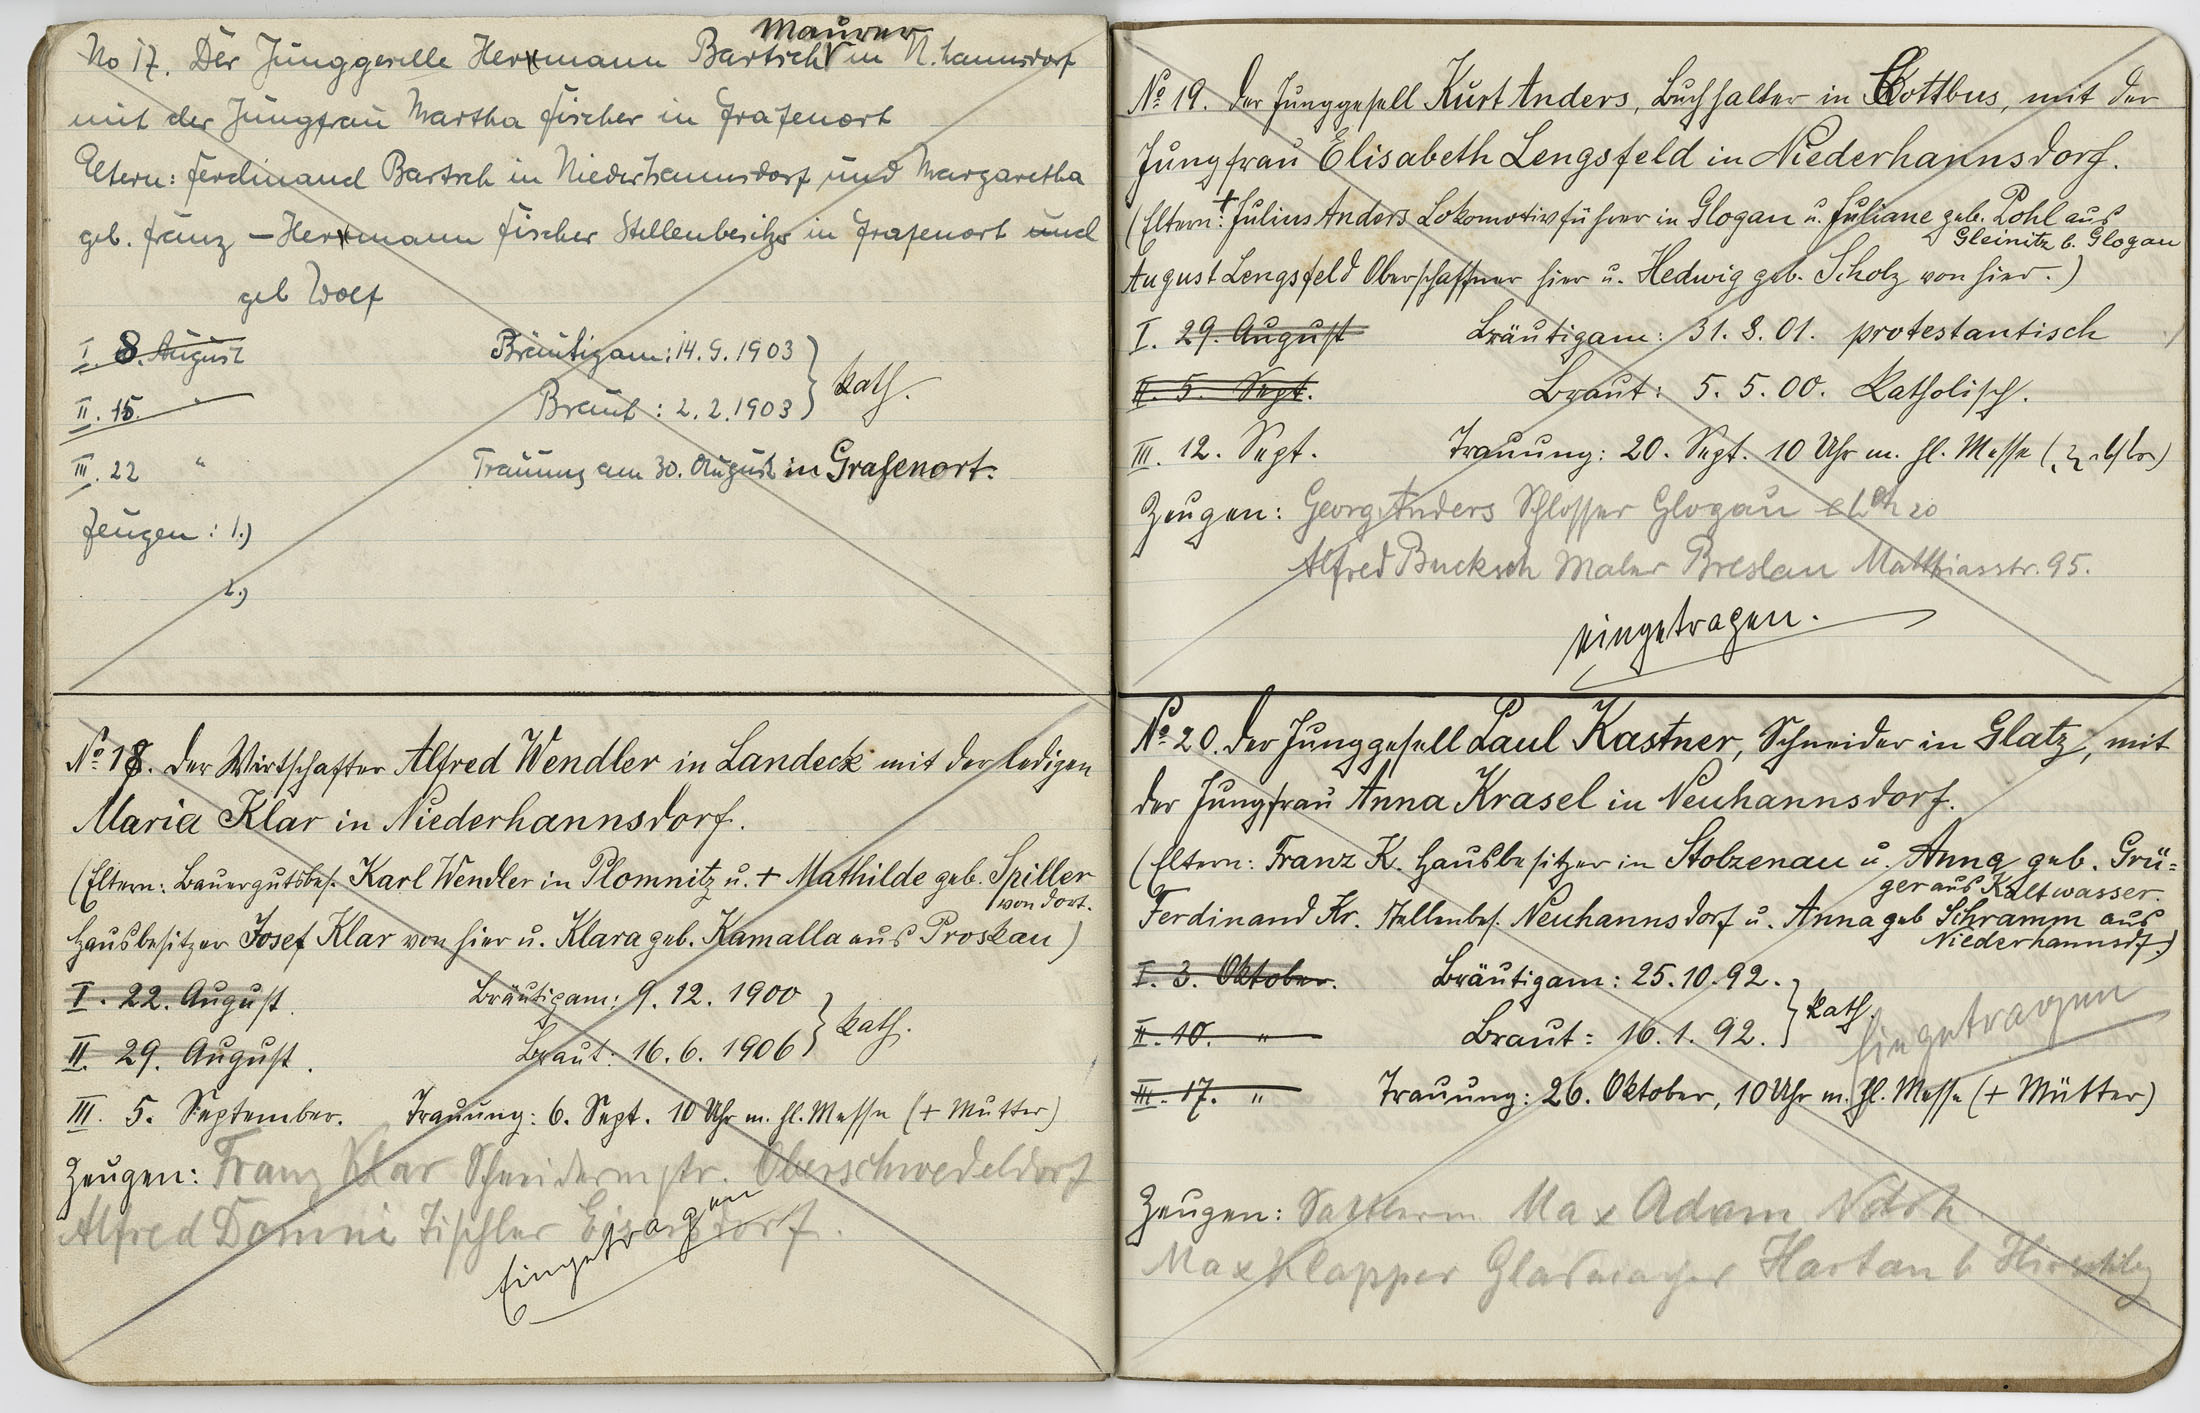 No 17. Der Junggeselle Hermann Bartsch Maurer in N. hannsdorf
mit der Jungfrau Martha Fischer in Grafenort
Eltern: Ferdinand Bartsch in Niederhannsdorf und Margaretha
geb. Franz – Hermann Fischer Stellenbesitzer in Grafenort und
geb Wolf
I. 8. August Bräutigam: 14. 9. 1903 } kath.
II. 15. " Braut: 2. 2. 1903
III. 22 " Trauung am 30. August in Grafenort.
Zeugen: 1.)
2.)
No 18. Der Wirtschafter Alfred Wendler in Landeck mit der ledigen
Maria Klar in Niederhannsdorf.
(Eltern: Bauergutsbes. Karl Wendler in Plomnitz u. + Mathilde geb. Spiller
von dort.
Hausbesitzer Josef Klar von hier u. Klara geb. Kamalla aus Proskau)
I. 22. August. Bräutigam: 9. 12. 1900 } kath.
II. 29. August. Braut: 16. 6. 1906
III. 5. September. Trauung: 6. Sept. 10 Uhr m. hl. Messe (+ Mutter)
Zeugen: Franz Klar Schneidermstr. Oberschwedeldorf
Alfred Domni Tischler Eisersdorf.
Eingetragen
No 19. Der Junggesell Kurt Anders, Buchhalter in Cottbus, mit der
Jungfrau Elisabeth Lengsfeld in Niederhannsdorf.
(Eltern: + Julius Anders Lokomotivführer in Glogau u. Juliane geb. Pohl aus
Gleinitz b. Glogau
August Lengsfeld Oberschaffner hier u. Hedwig geb. Scholz von hier.)
I. 29. August Bräutigam: 31. 8. 01. protestantisch
II. 5. Sept. Braut: 5. 5. 00. katholisch.
III. 12. Sept. Trauung: 20. Sept. 10 Uhr m. hl. Messe
Zeugen: Georg Anders Schlosser Glogau 20
Alfred Bucksch Maler Breslau Matthiasstr. 95.
eingetragen.
No 20. Der Junggesell Paul Kastner, Schneider in Glatz, mit
der Jungfrau Anna Krasel in Neuhannsdorf.
(Eltern: Franz K. Hausbesitzer in Stolzenau u. Anna geb. Grü=
ger aus Kaltwasser.
Ferdinand Kr. Stellenbes. Neuhannsdorf u. Anna geb Schramm aus
Niederhannsdf.)
I. 3. Oktober. Bräutigam: 25. 10. 92. } kath.
II. 10. " Braut: 16. 1. 92.
Eingetragen
III. 17. " Trauung: 26. Oktober, 10 Uhr m. hl. Messe (+ Mütter)
Zeugen: Max Adam
Max Klapper Glasmacher Hartau b Hirschbg